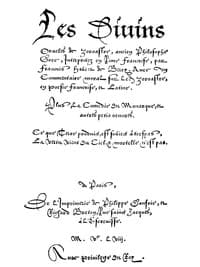 Les Diuins
Oracles de Zoroastre, ancien Philosophe
Grec, Interpretez en Rime Francoise, par
Francois Habert de Berry. Auec vn
Commentaire moral sur ledit Zoroastre,
en poesie Francoise, & Latine.
Plus la Comedie du Monarque, &
autres petis œuures.
Ce que produit, est subiect a
La vertu du Ciel, mortelle n'est pas.
A Paris,
De L'Imprimerie de Philippe Danfrie, et
Richard Breton, Rue sainct Jacques,
à L'Escreuisse.
M. V. L. viij.
Auec priuilege du Roy